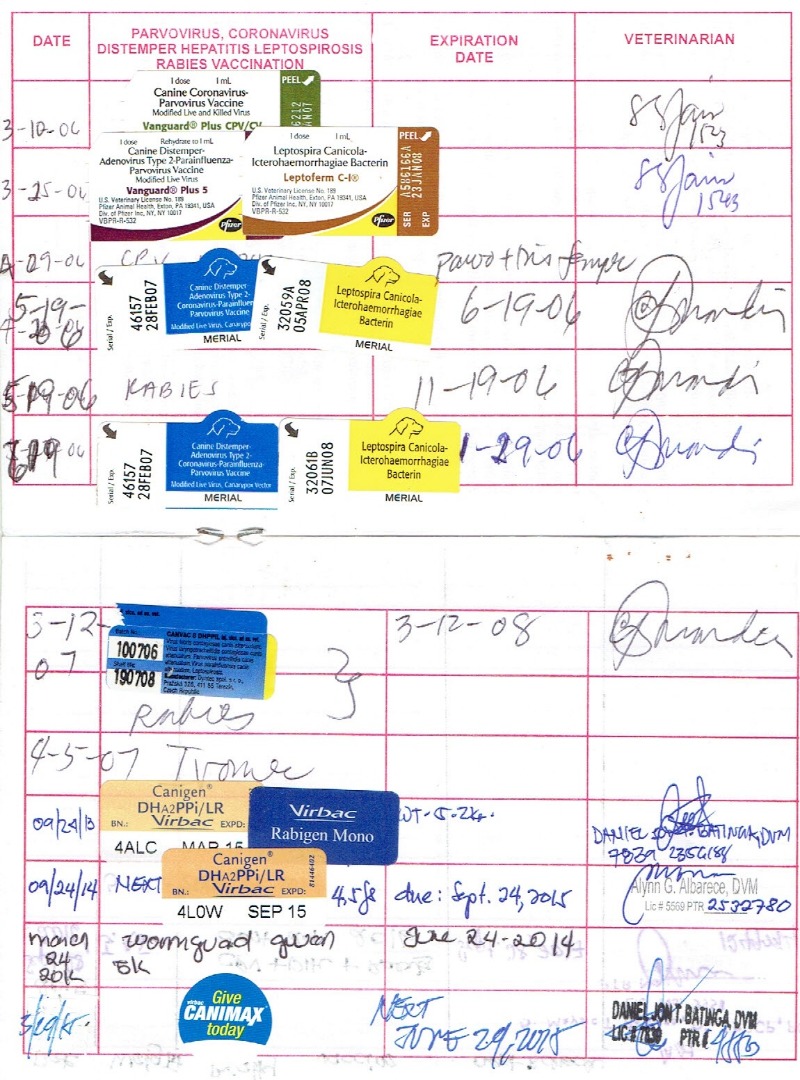 DATE
PARVOVIRUS, CORONAVIRUS
DISTEMPER HEPATITIS LEPTOSPIROSIS
RABIES VACCINATION
EXPIRATION
DATE
VETERINARIAN
3-10-06
1 dose 1 mL
Canine Coronavirus-
Parvovirus Vaccine
Modified Live and Killed Virus
Vanguard® Plus CPV/CV
PEEL
3-25-06
1 dose Rehydrate to 1 mL
Canine Distemper-
Adenovirus Type 2-Parainfluenza-
Parvovirus Vaccine
Modified Live Virus
Vanguard® Plus 5
U.S. Veterinary License No. 189
Pfizer Animal Health, Exton, PA 19341, USA
Div. of Pfizer Inc, NY, NY 10017
VBPR-R-532
Pfizer
1 dose 1 mL
Leptospira Canicola-
Icterohaemorrhagiae Bacterin
Leptoferm C-I®
U.S. Veterinary License No. 189
Pfizer Animal Health, Exton, PA 19341, USA
Div. of Pfizer Inc, NY, NY 10017
VBPR-R-532
Pfizer
PEEL
SER 1586166A
EXP 23JAN08
1543
4-29-06
CPV
Parvo + Distemper
5-19-
Serial / Exp.
46157
28FEB07
Canine Distemper-
Adenovirus Type 2-
Coronavirus-Parainfluenza-
Parvovirus Vaccine
Modified Live Virus, Canarypox
MERIAL
Serial / Exp.
32059A
05APR08
Leptospira Canicola-
Icterohaemorrhagiae
Bacterin
MERIAL
6-19-06
5-19-06
RABIES
11-19-06
Serial / Exp.
46157
28FEB07
Canine Distemper-
Adenovirus Type 2-
Coronavirus-Parainfluenza-
Parvovirus Vaccine
Modified Live Virus, Canarypox Vector
MERIAL
Serial / Exp.
32061B
07JUN08
Leptospira Canicola-
Icterohaemorrhagiae
Bacterin
MERIAL
1-29-06
3-12-
07
Batch No.
100706
190708
CANVAC ® DHPPiL
Czech Republic
3-12-08
Rabies
4-5-07
09/24/13
Canigen®
DHA2PPi/LR
BN.: Virbac EXPD:
4ALC MAR 15
Virbac
Rabigen Mono
WT-5.2kg.
DANIEL JON T. BATINGA, DVM
09/24/14
NEXT
Canigen®
DHA2PPi/LR
BN.: Virbac EXPD:
4L0W SEP 15
81446402
due: Sept. 24, 2015
Alynn G. Albarece, DVM
Lic # 5569 PTR 2532780
March
24
wormguard given
5k
June 24-2014
virbac
Give
CANIMAX
today
NEXT
JUNE 29, 2015
DANIEL JON T. BATINGA, DVM
LIC # 7839 PTR #